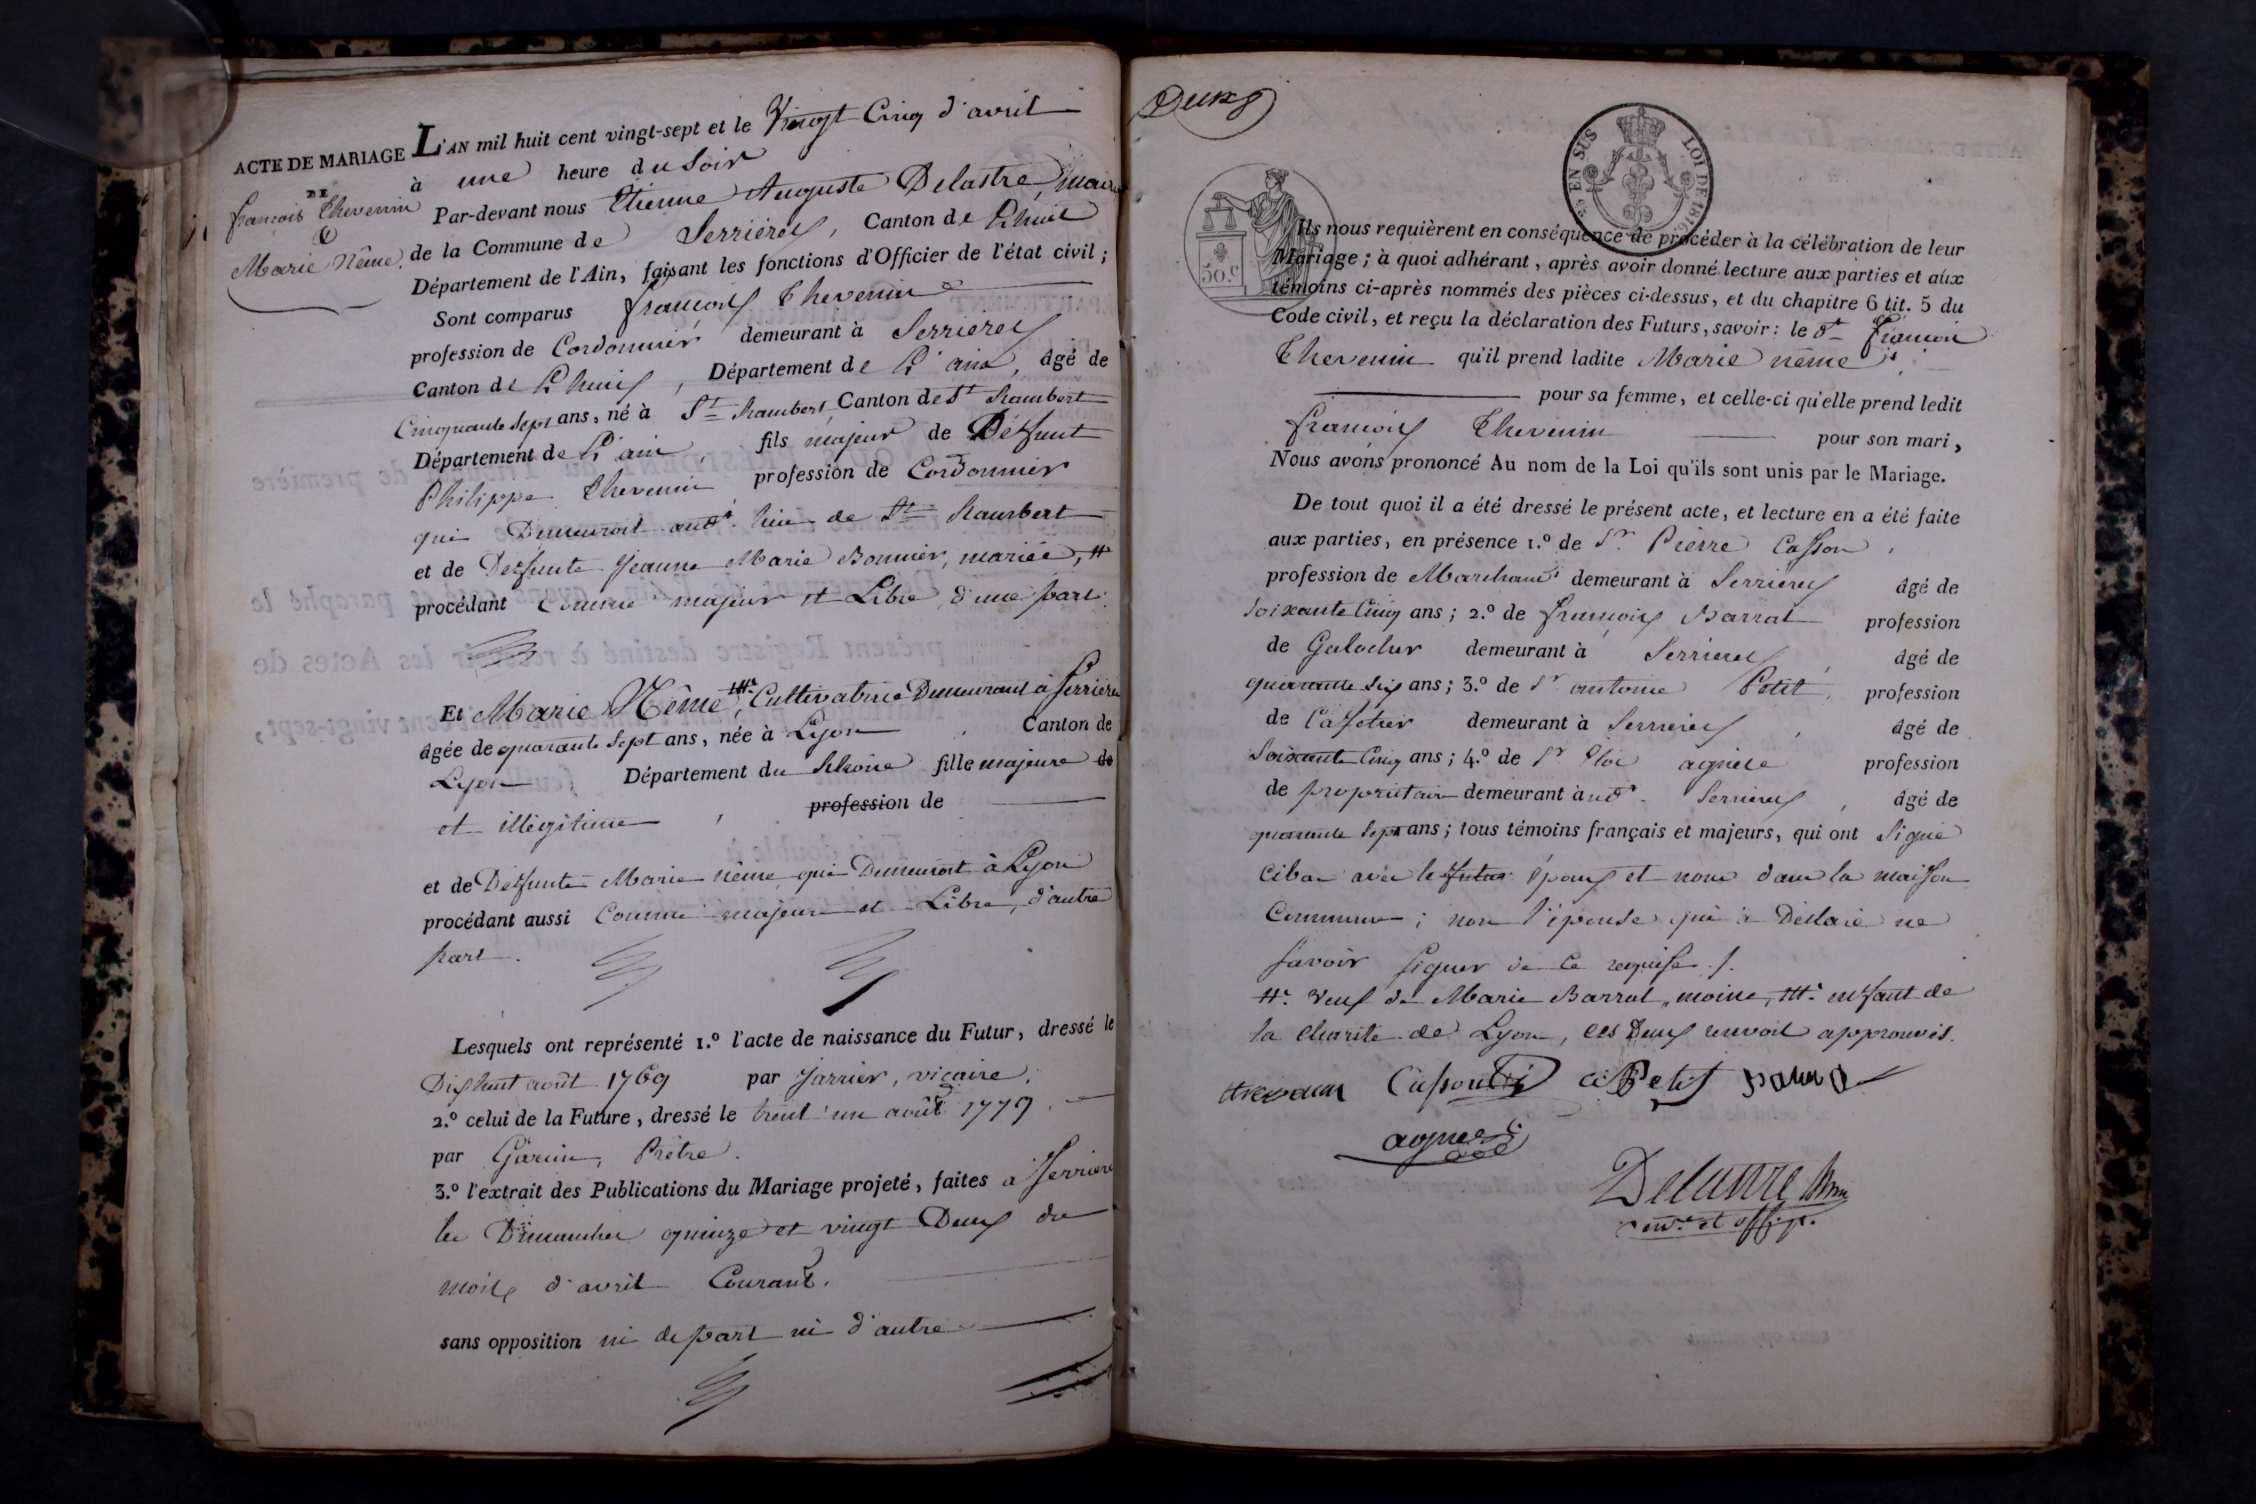 ACTE DE MARIAGE
DE
françois Thevenin
&
Marie Nême.
L'AN mil huit cent vingt-sept et le Vingt Cinq d'avril
à une heure du Soir
Par-devant nous Etienne Auguste Delastre, maire
de la Commune de Serrières, Canton de Lhuis
Département de l'Ain, faisant les fonctions d'Officier de l'état civil;
Sont comparus françois Thevenin
profession de Cordonnier demeurant à Serrieres
Canton de Lhuis, Département de L'ain, âgé de
Cinquante Sept ans, né à St Rambert Canton de St Rambert
Département de L'ain, fils majeur de Déffunt
Philippe Thevenin, profession de Cordonnier
qui Demeuroit audt. lieu de St Rambert
et de Deffunte Jeanne Marie Bonnier, mariée, #
procédant Comme majeur et Libre, d'une part.
Et Marie Nême, ##. Cultivatrice Demeurant à Serriere
âgée de quarante Sept ans, née à Lyon, Canton de
Lyon Département du Rhone fille majeure de
et illégitime, profession de
et de Deffunte Marie nême qui Demeuroit à Lyon
procédant aussi Comme majeure et Libre, d'autre
part.
Lesquels ont représenté 1.º l'acte de naissance du Futur, dressé le
Dix huit août 1769 par Jarrier, vicaire.
2.º celui de la Future, dressé le trent'un août 1779.
par Garin, Prêtre.
3.º l'extrait des Publications du Mariage projeté, faites à Serriere
les Dimanches quinze et vingt Deux du
mois d'avril Courant.
sans opposition ni de part ni d'autre
Deux
25 EN SUS
LOI DE 1816.
50.c
Ils nous requièrent en conséquence de procéder à la célébration de leur
Mariage; à quoi adhérant, après avoir donné lecture aux parties et aux
témoins ci-après nommés des pièces ci-dessus, et du chapitre 6 tit. 5 du
Code civil, et reçu la déclaration des Futurs, savoir: le dt françois
Thevenin qu'il prend ladite Marie nême,
pour sa femme, et celle-ci qu'elle prend ledit
françois Thevenin pour son mari,
Nous avons prononcé Au nom de la Loi qu'ils sont unis par le Mariage.
De tout quoi il a été dressé le présent acte, et lecture en a été faite
aux parties, en présence 1.º de Sr. Pierre Casson,
profession de Marchand demeurant à Serrieres âgé de
Soixante Cinq ans; 2.º de françois Barrat profession
de Galocher demeurant à Serrieres, âgé de
quarante Six ans; 3.º de Sr antoine Petit, profession
de Cafetier demeurant à Serrieres, âgé de
Soixante Cinq ans; 4.º de Sr Eloi agniele profession
de proprietaire demeurant audt. Serrieres, âgé de
quarante Sept ans; tous témoins français et majeurs, qui ont Signé
cibas avec le futur époux et nous dans la maison
Commune; non l'épouse qui a Déclaré ne
savoir signer de ce requise./.
#. veuf de Marie Barrat, moine, ##. enfant de
la charité de Lyon, ces Deux renvoit approuvés.
thevenin Casson Petit barra
agniel
Delastre